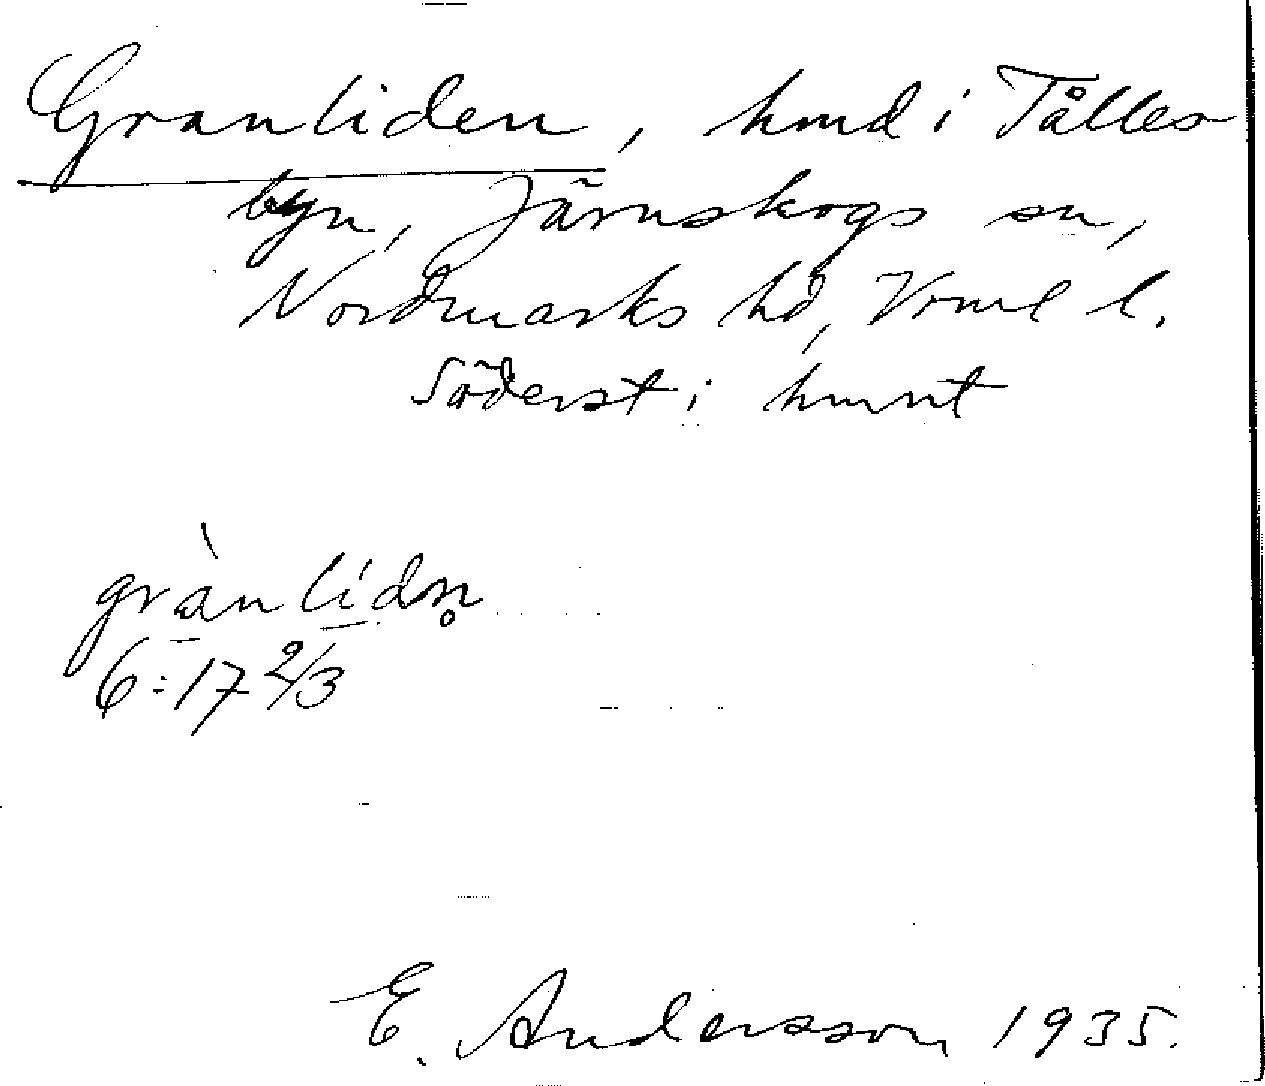 Granliden, hmd i Tålles
byn, Järnskogs sn,
Nordmarks hd, Vrml l.
Söderst i hmnt
grànlídn̥
6:17 2/3
E. Andersson 1935.